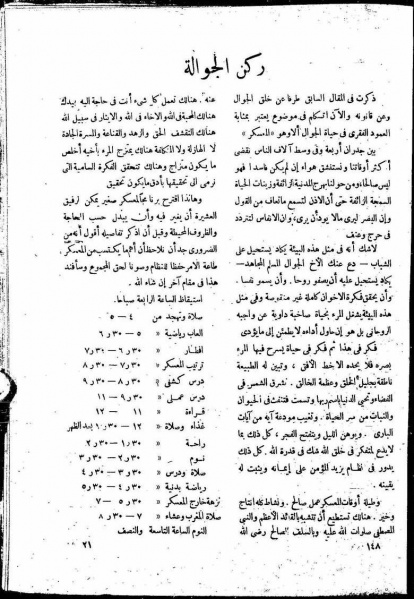 ركن الجوالة
ذكرت فى المقال السابق طرفا عن خلق الجوال
وعن قانونه والآن أتكلم فى موضوع يعتبر بمثابة
العمود الفقرى فى حياة الجوال ألا وهو «المعسكر»
بين جدران أربعة وفى وسط آلاف الناس نقضى
أكثر أوقاتنا ونستنشق هواء إن لم يكن فاسدا فهو
ليس صالحا، ومن حولنا بهرج الدنيا الزائفة وزينات الحياة
السمجة الزائفة حتى أن الأذن لتسمع ما تعاف من القول
وإن البصر ليرى مالا يود أن يرى، وإن الأنفاس لتتردد
فى حرج وعنف
لا شك أنه فى مثل هذه البيئة يكاد يستحيل على
الشباب — دع عنك الأخ الجوال المسلم المجاهد —
يكاد يستحيل عليه أن يصفو روحا. وأن يسمو نفسا.
وأن يحقق فكرة الاخوان كاملة غير منقوصة وفى مثل
هذه البيئة يشغل المرء بحياة صاخبة داوية عن واجبه
الروحانى بل هو إن حاول أداءه لا يطمئن إلى ما يؤدى
فكر فى هذا ثم فكر فى حياة يسرح فيها المرء
بصره فلا يحده إلا خط الأفق، وتبين له الطبيعة
ناطقة بجليل الخلق وعظمة الخالق. تشرق الشمس فى
الفضاء وتحيى الدنيا باسم ربها وتسمت فتنفث فى الحيوان
والنبات من سر الحياة. وتغيب مودعة آية من آيات
البارى. ويوهن الليل ويتفتح الفجر، كل ذلك بما
لايدع لمتفكر فى خلق الله شك فى قدرة الله. كل
يدور فى نظام يزيد المؤمن على إيمانه ويثبت له
يقينه.
وطيلة أوقات المعسكر عمل صالح. ونشاط كله إنتاج
وخير. هنالك تستطيع أن تتشبه بالقائد الأعظم والنبى
المصطفى صلوات الله عليه وبالسلف الصالح رضى الله
عنه. هنالك تعمل كل شىء أنت فى حاجة اليه بيدك
هنالك المحبة فى الله والاخاء فى الله والايثار فى سبيل الله
هنالك التقشف الحق والزهد والقناعة والمسرة الجادة
لا الهازلة ولا المتكلفة هنالك يمتزج المرء بأخيه أخلص
ما يكون متزاج وهنالك تتحقق الفكرة السامية التى
نرمى الى تحقيقها بأدق ما يكون تحقيق
وهاانذا أقترح برنامجا لمعسكر صغير يمكن لرفيق
العشيرة أن يغير فيه وأن يبدل حسب الحاجة
والظروف المحيطة وقبل أن أذكر تفاصيله أقول أنه من
الضرورى جدا أن نلاحظ أن أهم ما يكتسب من المعسكر.
طاعة الأمر حفظا للنظام وصونا لحق المجموع وسأفند
هذا فى مقام آخر إن شاء الله.
استيقاظ الساعة الرابعة صباحا.
صلاة وتهجد من ٤ — ٥
ألعاب رياضية » ٥ — ٣٠ر٦
إفطار » ٣٠ر٦ — ٣٠ر٧
ترتيب المعسكر » ٣٠ر٧ — ٣٠ر٨
درس كشفى » ٣٠ر٨ — ٣٠ر٩
درس عمل » ٣٠ر٩ — ١١
قراءة » ١١ — ١٢
غذاء وصلاة » ١٢ — ٣٠ر١ بعد الظهر
راحة » ٣٠ر١ — ٢
نوم » ٢ — ٣٠ر٣
صلاة ودرس » ٣٠ر٣ — ٣٠ر٤
رياضة بدنية » ٣٠ر٤ — ٣٠ر٥
نزهة خارج المعسكر » ٣٠ر٥ — ٧
صلاة المغرب وعشاء » ٧ — ٣٠ر٨
النوم الساعة التاسعة والنصف
١٤٨
٢١